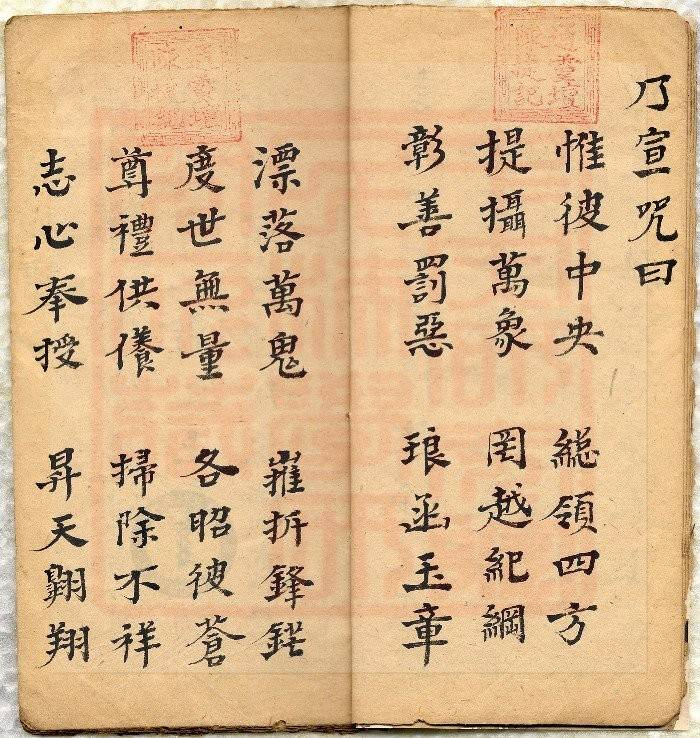 乃宣咒曰
惟彼中央 緫領四方
提攝萬象 罔越紀綱
彰善罰惡 琅函玉章
漂落萬鬼 摧折鋒鋩
度世無量 各昭彼蒼
尊禮供養 掃除不祥
志心奉授 昇天翾翔